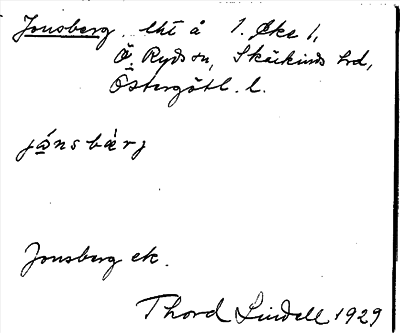 Jonsberg lht å 1. Öke 1,
Ö. Ryds sn, Skärkinds hrd,
Östergötl. l.
jǻnsbærj
Jonsberg ek.
Thord Lindell 1929